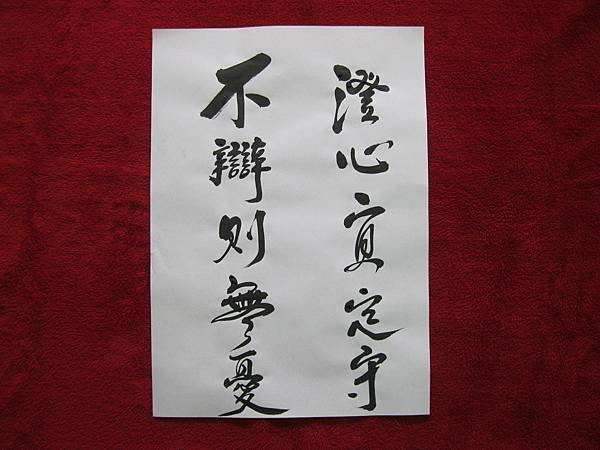 澄心真定守
不辯則無憂